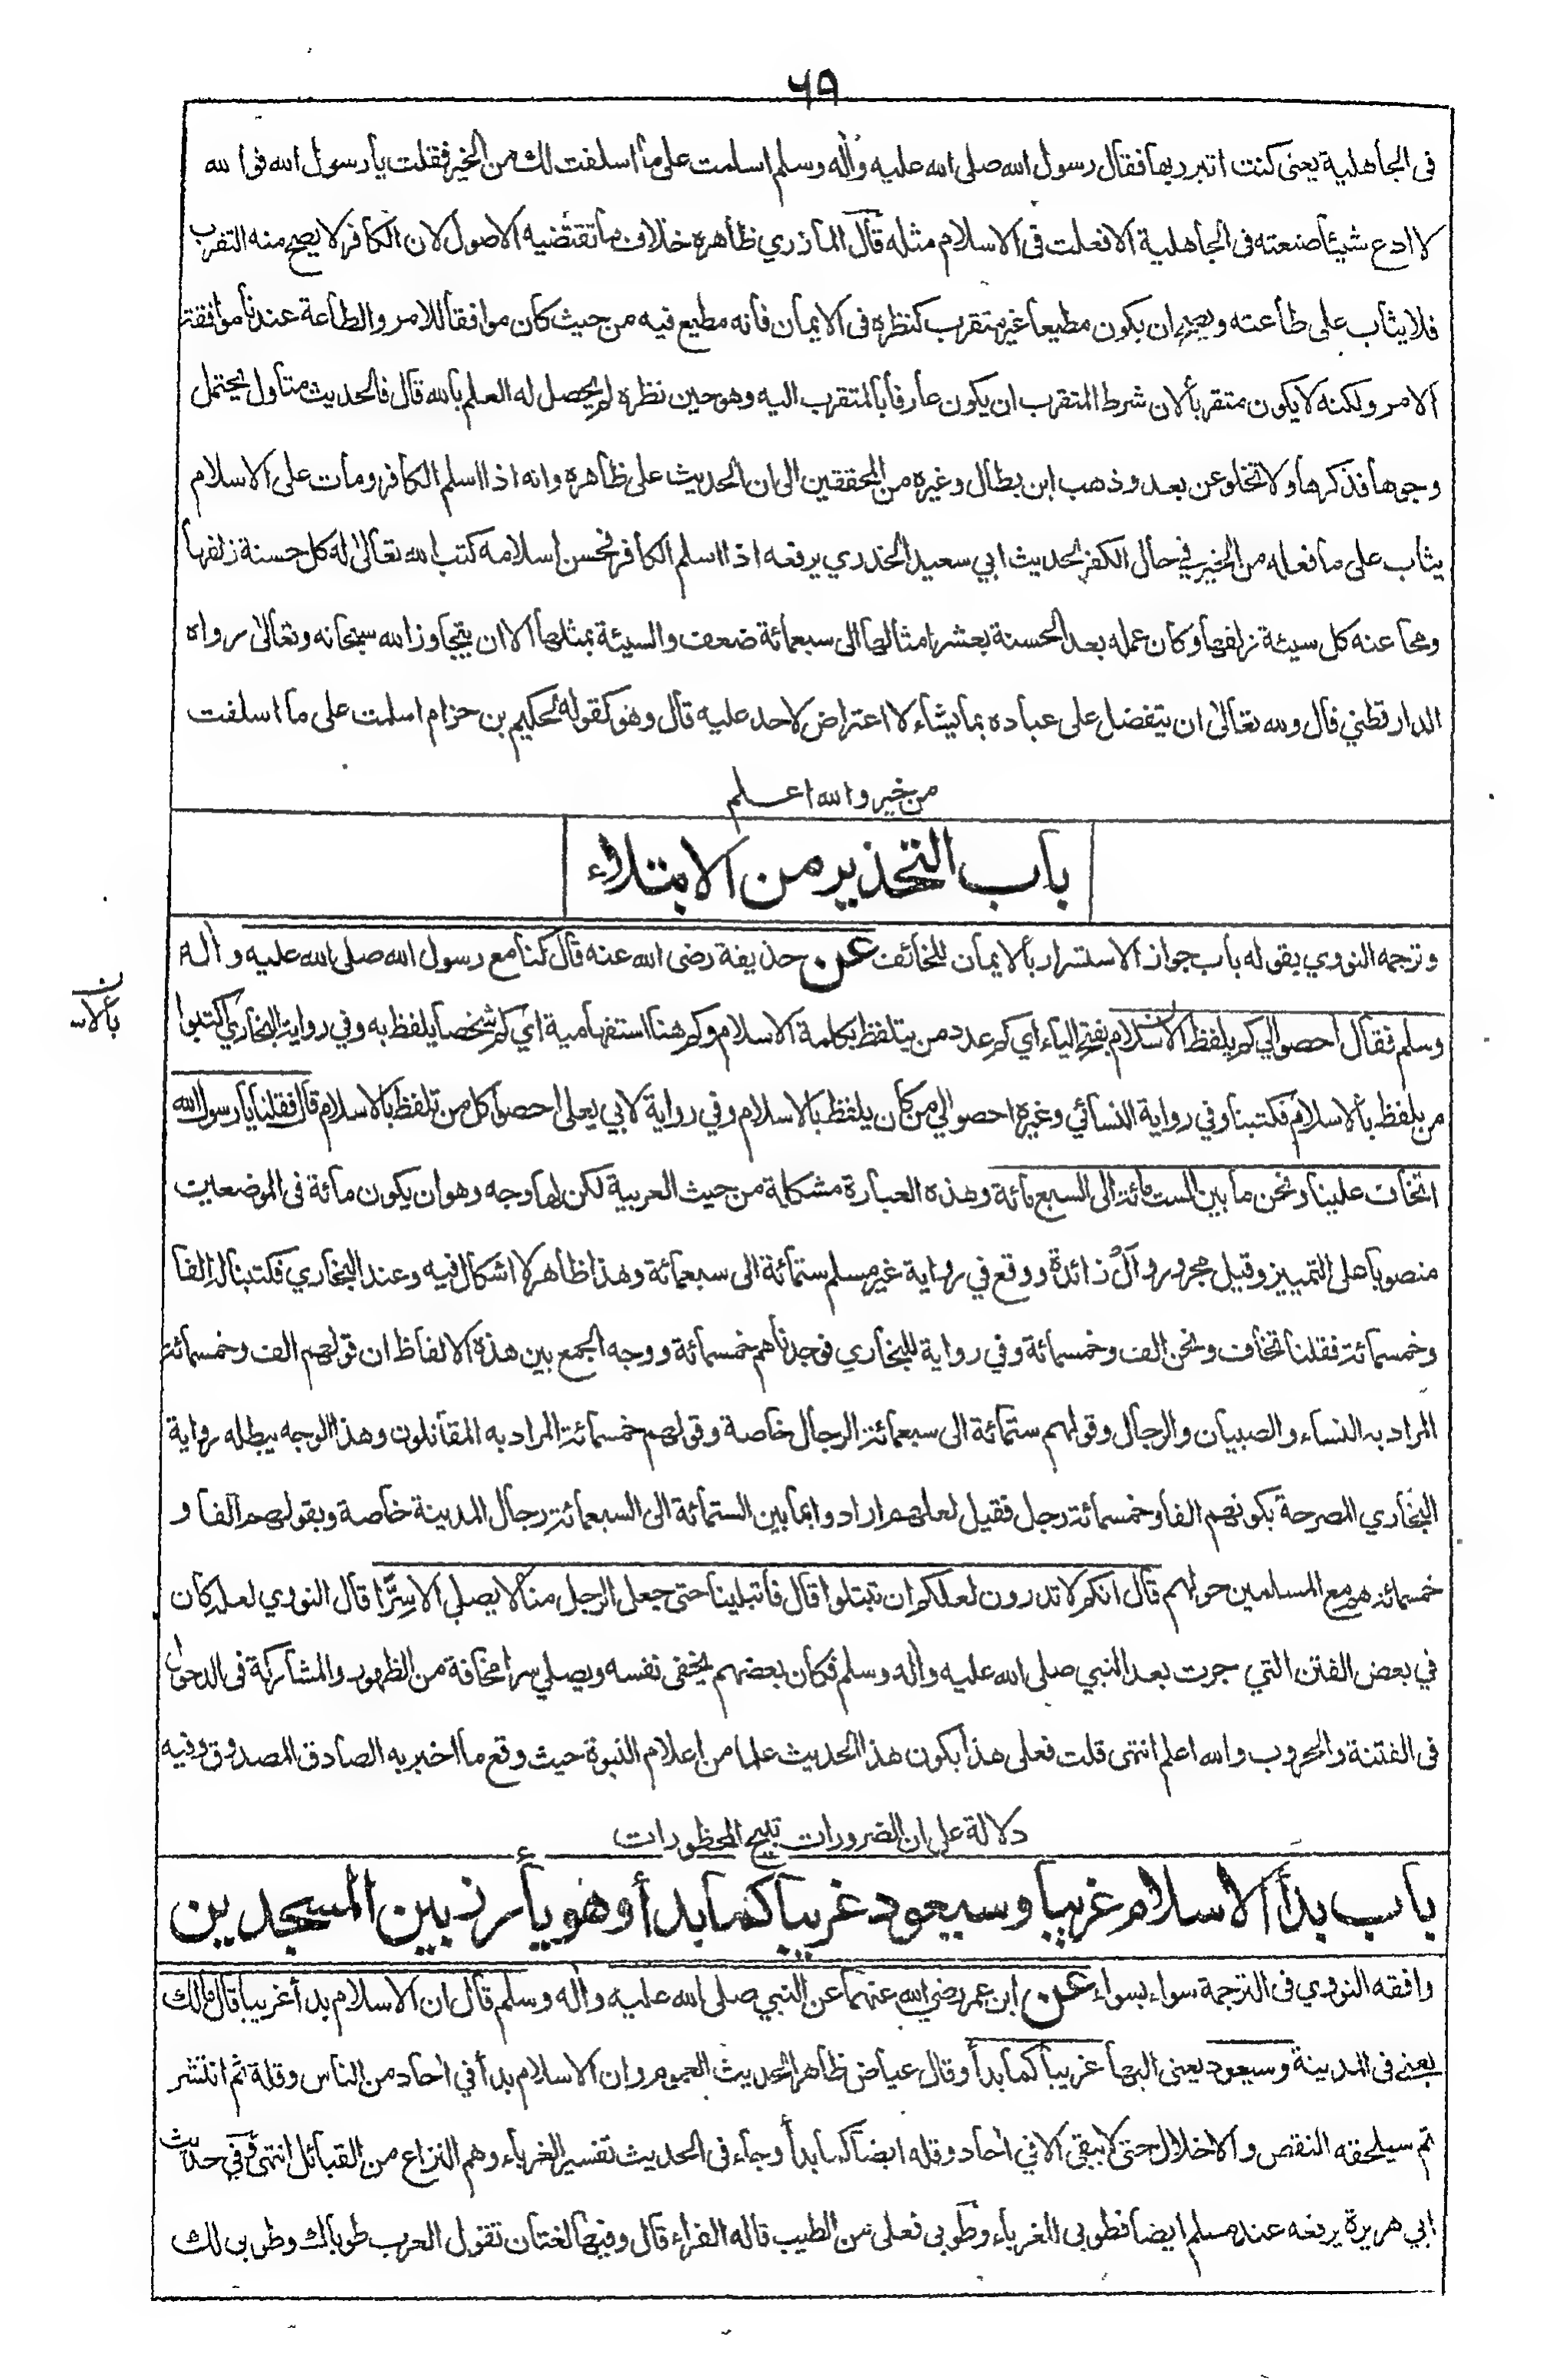 ٦٩
فى الجاهلية يعنى كنت اتبرر بها فقال رسول الله صلى الله عليه وأله وسلم اسلمت على ما اسلفت لك من الخير فقلت يا رسول الله فوالله
لا ادع شيئا صنعته فى الجاهلية الا فعلت فى الاسلام مثله قال المازري ظاهره خلاف ما تقتضيه الاصول لان الكافر لا يصح منه التقرب
فلا يثاب على طاعته ويصح ان يكون مطيعا غير متقرب كنظره فى الايمان فانه مطيع فيه من حيث كان موافقا للامر والطاعة عندنا موافقة
الامر ولكنه لا يكون متقربا لان شرط المتقرب ان يكون عارفا بالمتقرب اليه وهو حين نظره لم يحصل له العلم بالله قال فالحديث متاول يحتمل
وجوها فذكرها ولا تخلو عن بعد وذهب ابن بطال وغيره من المحققين الى ان الحديث على ظاهره وانه اذا اسلم الكافر ومات على الاسلام
يثاب على ما فعله من الخير في حال الكفر لحديث ابي سعيد الخدري يرفعه اذا اسلم الكافر فحسن اسلامه كتب الله تعالى له كل حسنة زلفها
ومحا عنه كل سيئة زلفها وكان عمله بعد الحسنة بعشر امثالها الى سبعمائة ضعف والسيئة بمثلها الا ان يتجاوز الله سبحانه وتعالى رواه
الدارقطني قال ولله تعالى ان يتفضل على عباده بما يشاء لا اعتراض لاحد عليه قال وهو كقوله لحكيم بن حزام اسلمت على ما اسلفت
من خير والله اعلم
باب التحذير من الابتلاء
وترجمه النووي بقوله باب جواز الاستسرار بالايمان للخائف عن حذيفة رضى الله عنه قال كنا مع رسول الله صلى الله عليه وأله
وسلم فقال احصوا لي كم يلفظ الاسلام بفتح الياء اي كم عدد من يتلفظ بكلمة الاسلام وكم هنا استفهامية اي كم شخصا يلفظ به وفي رواية البخاري اكتبوا
ن بالاس
من يلفظ بالاسلام فكتبنا وفي رواية النسائي وغيره احصوا لي من كان يلفظ بالاسلام وفي رواية لابي يعلى احصوا كل من تلفظ بالاسلام قال فقلنا يا رسول الله
اتخاف علينا ونحن ما بين الست مائة الى السبع مائة وهذه العبارة مشكلة من حيث العربية لكن لها وجه وهو ان يكون مائة فى الموضعين
منصوبا على التمييز وقيل مجرور وأل زائدة ووقع في رواية غير مسلم ستمائة الى سبعمائة وهذا ظاهر لا اشكال فيه وعند البخاري فكتبنا له الفا
وخمسمائة فقلنا تخاف ونحن الف وخمسمائة وفي رواية للبخاري فوجدناهم خمسمائة ووجه الجمع بين هذه الالفاظ ان قولهم الف وخمسمائة
المراد به النساء والصبيان والرجال وقولهم ستمائة الى سبعمائة الرجال خاصة وقولهم خمسمائة المراد به المقاتلون وهذا الوجه يبطله رواية
البخاري المصرحة بكونهم الفا وخمسمائة رجل فقيل لعلهم ارادوا بما بين الستمائة الى السبعمائة رجال المدينة خاصة وبقولهم الفا و
خمسمائة هم مع المسلمين حولهم قال انكم لا تدرون لعلكم ان تبتلوا قال فابتلينا حتى جعل الرجل منا لا يصلي الا سرا قال النووي لعله كان
في بعض الفتن التي جرت بعد النبي صلى الله عليه وأله وسلم فكان بعضهم يخفى نفسه ويصلي سرا مخافة من الظهور والمشاركة فى الدخول
فى الفتنة والحروب والله اعلم انتهى قلت فعلى هذا يكون هذا الحديث علما من اعلام النبوة حيث وقع ما اخبر به الصادق المصدوق وفيه
دلالة على ان الضرورات تبيح المحظورات
باب بدأ الاسلام غريبا وسيعود غريبا كما بدأ وهو يأرز بين المسجدين
وافقه النووي فى الترجمة سواء بسواء عن ابن عمر رضي الله عنهما عن النبي صلى الله عليه وأله وسلم قال ان الاسلام بدأ غريبا قال مالك
يعنى فى المدينة وسيعود يعنى اليها غريبا كما بدأ وقال عياض ظاهر الحديث العموم وان الاسلام بدأ في احاد من الناس وقلة ثم انتشر
ثم سيلحقه النقص والاخلال حتى لا يبقى الا في احاد وقله ايضا كما بدأ وجاء فى الحديث تفسير الغرباء وهم النزاع من القبائل انتهى وفي حديث
ابي هريرة يرفعه عند مسلم ايضا فطوبى للغرباء وطوبى فعلى من الطيب قاله الفراء قال وفيها لغتان تقول العرب طوباك وطوبى لك